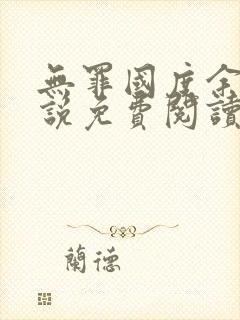 無罪國度余
說免費閱讀
蘭德